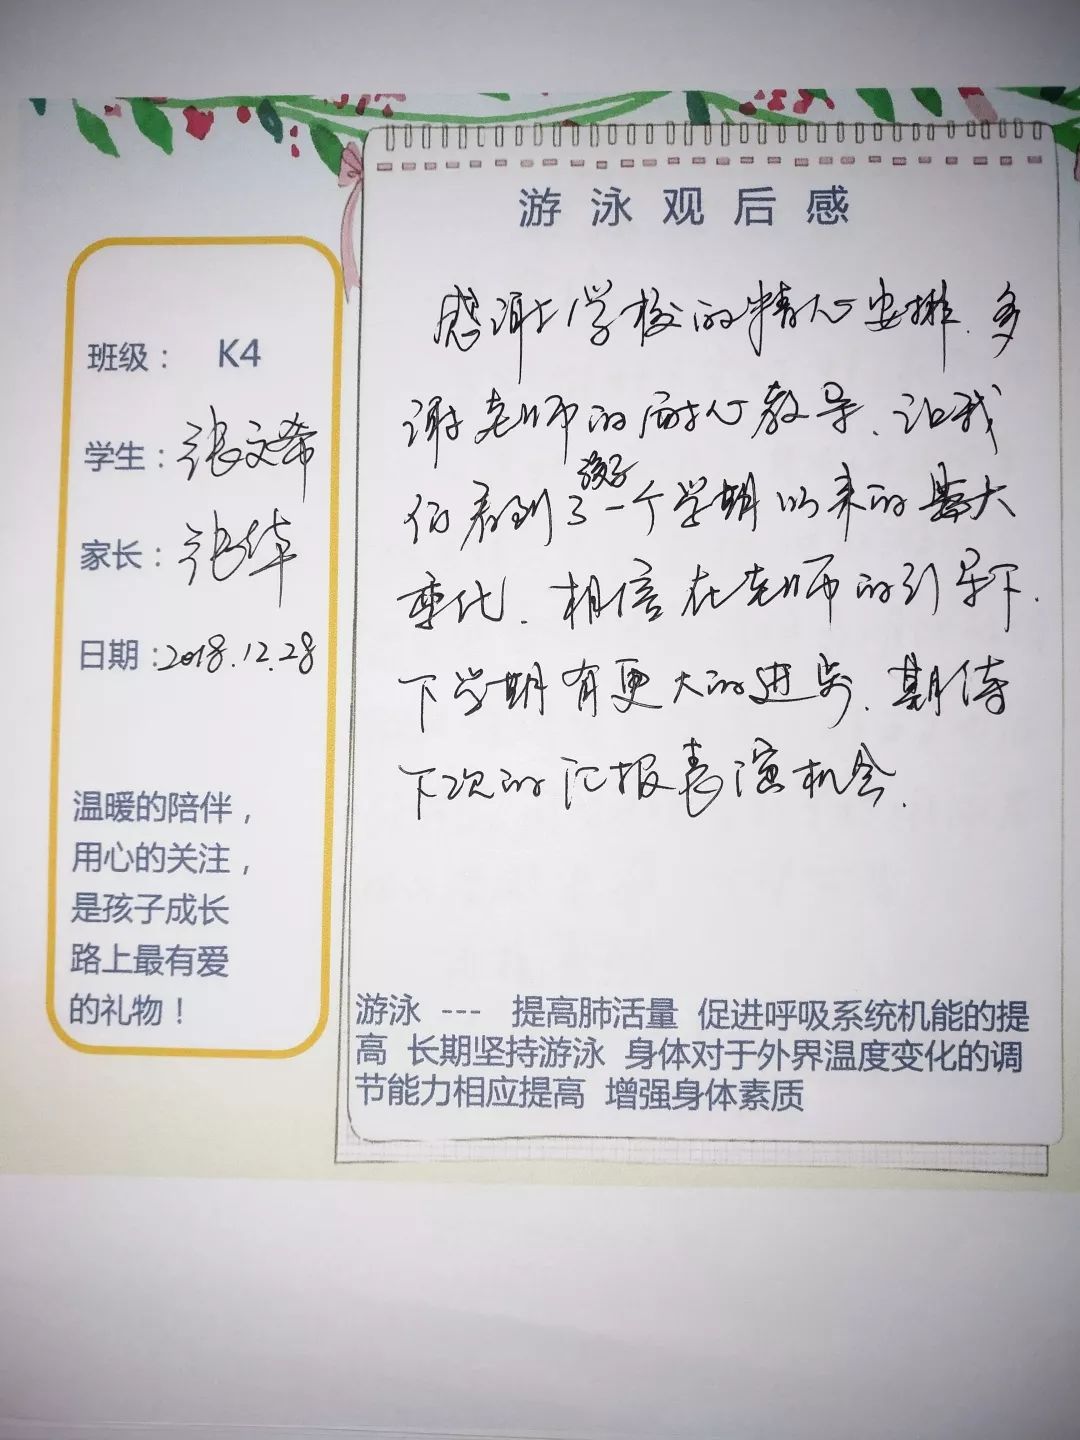 班级： K4
学生：张文希
家长：张华
日期：2018.12.28
温暖的陪伴，
用心的关注，
是孩子成长
路上最有爱
的礼物！
游泳观后感
感谢学校的精心安排.多
谢老师的耐心教导.让我
们看到了孩子一个学期以来的最大
变化.相信在老师的引导下.
下学期有更大的进步.期待
下次的汇报表演机会.
游泳 --- 提高肺活量 促进呼吸系统机能的提
高 长期坚持游泳 身体对于外界温度变化的调
节能力相应提高 增强身体素质